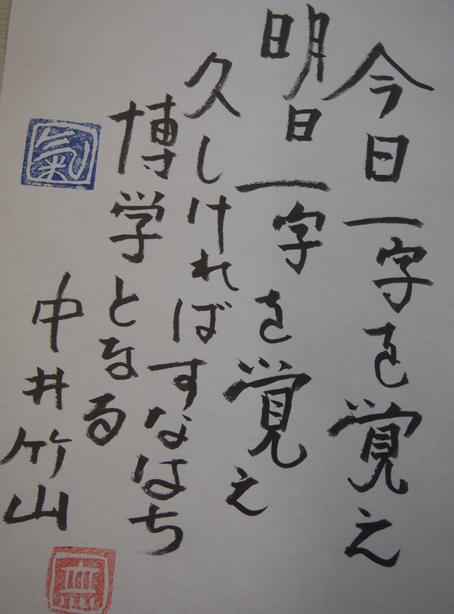 今日一字を覚え
明日一字を覚え
久しければすなはち
博学となる
中井竹山
氣